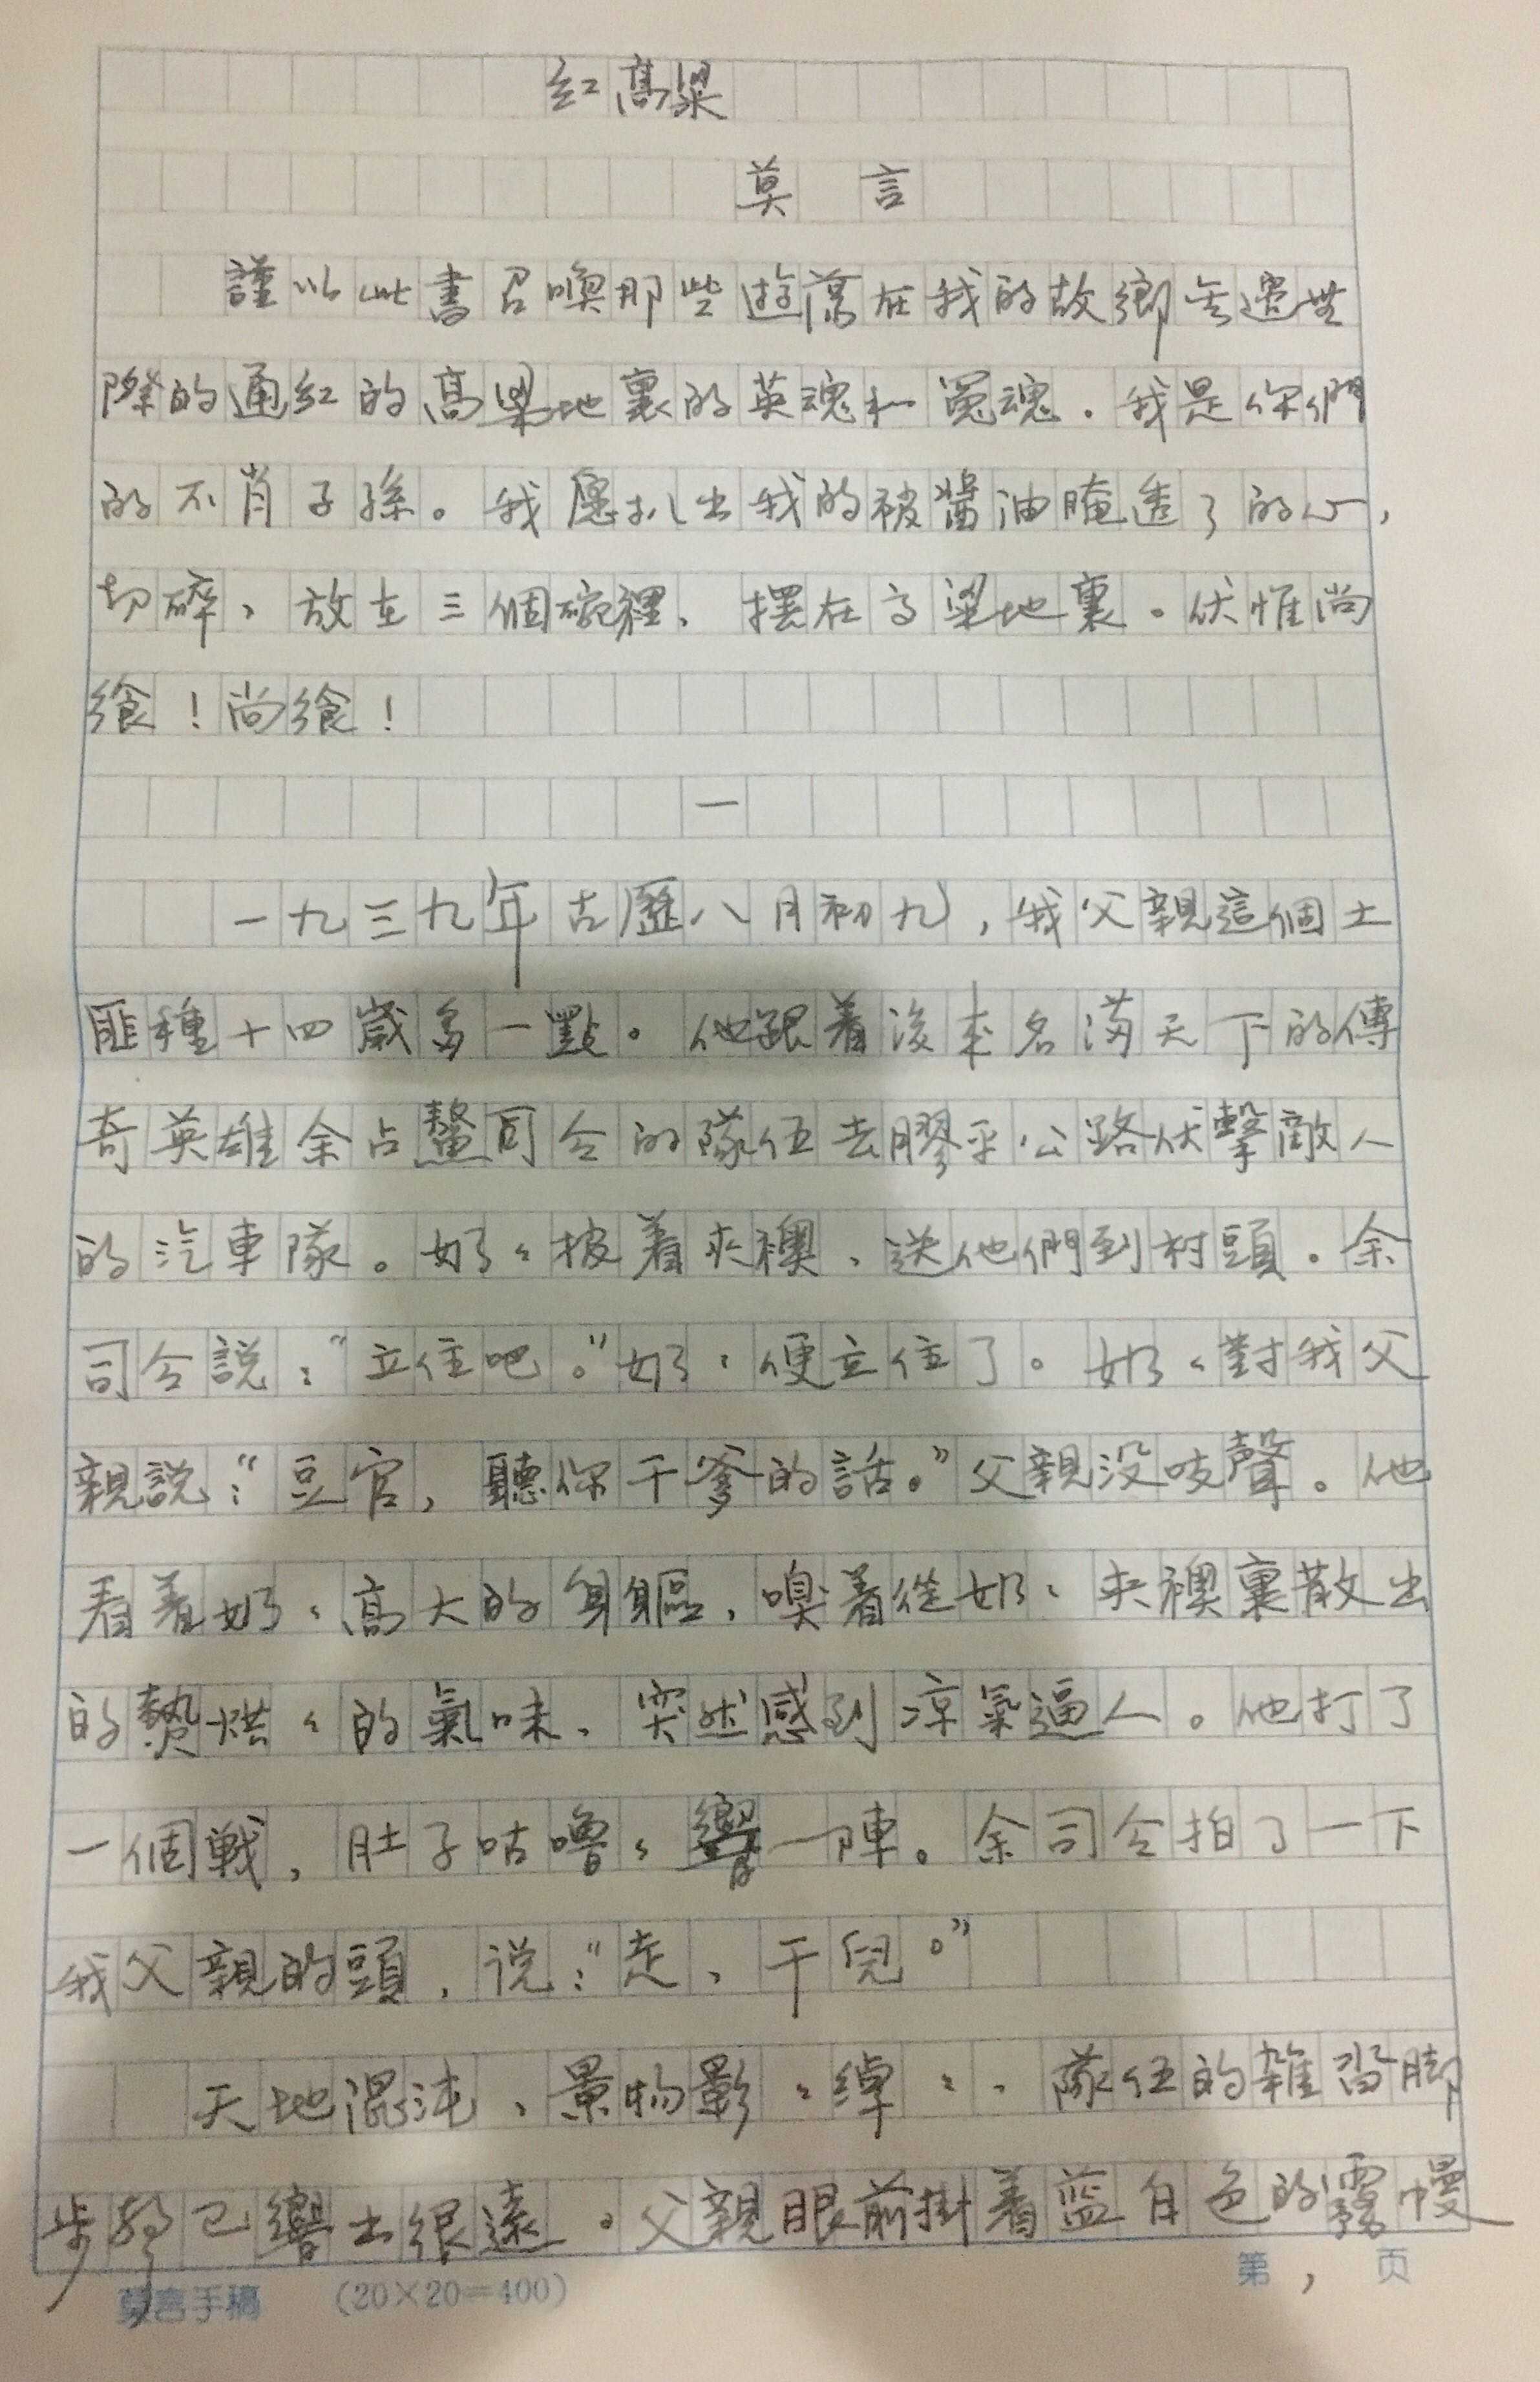 紅高粱
莫言
謹以此書召喚那些遊蕩在我的故鄉無邊無
際的通紅的高粱地裏的英魂和冤魂。我是你們
的不肖子孫。我愿扒出我的被醬油腌透了的心,
切碎、放在三個碗裡、擺在高粱地裏。伏惟尚
飨!尚飨!
一
一九三九年古歷八月初九,我父親這個土
匪種十四歲多一點。他跟着後來名滿天下的傳
奇英雄余占鰲司令的隊伍去膠平公路伏擊敵人
的汽車隊。奶々披着夾襖、送他們到村頭。余
司令説:“立住吧。”奶々便立住了。奶々對我父
親説:“豆官,聽你干爹的話。”父親没吱聲。他
看着奶々高大的身軀,嗅着從奶々夾襖裏散出
的熱烘々的氣味、突然感到凉氣逼人。他打了
一個戰,肚子咕嚕々響一陣。余司令拍了一下
我父親的頭,说:“走、干兒。”
天地混沌、景物影々綽々、隊伍的雜沓脚
步聲已響出很遠。父親眼前掛着蓝白色的霧幔
,
莫言手稿 (20×20=400) 第 页